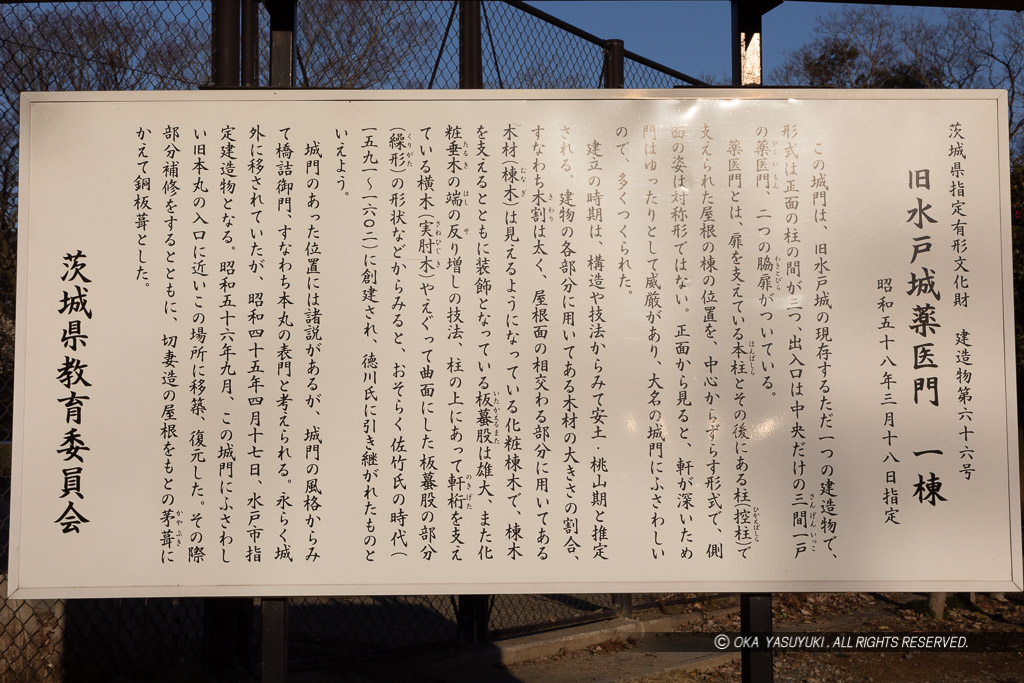 茨城県指定有形文化財 建造物第六十六号
旧水戸城薬医門 一棟
昭和五十八年三月十八日指定
この城門は、旧水戸城の現存するただ一つの建造物で、
形式は正面の柱の間が三つ、出入口は中央だけの三間一戸
の薬医門、二つの脇扉がついている。
薬医門とは、扉を支えている本柱とその後にある柱(控柱)で
支えられた屋根の棟の位置を、中心からずらす形式で、側
面の姿は対称形ではない。正面から見ると、軒が深いため
門はゆったりとして威厳があり、大名の城門にふさわしい
ので、多くつくられた。
建立の時期は、構造や技法からみて安土・桃山期と推定
される。建物の各部分に用いてある木材の大きさの割合、
すなわち木割は太く、屋根面の相交わる部分に用いてある
木材(棟木)は見えるようになっている化粧棟木で、棟木
を支えるとともに装飾となっている板蟇股は雄大、また化
粧垂木の端の反り増しの技法、柱の上にあって軒桁を支え
ている横木(実肘木)やえぐって曲面にした板蟇股の部分
(繰形)の形状などからみると、おそらく佐竹氏の時代(
一五九一〜一六〇二)に創建され、徳川氏に引き継がれたものと
いえよう。
城門のあった位置には諸説があるが、城門の風格からみ
て橋詰御門、すなわち本丸の表門と考えられる。永らく城
外に移されていたが、昭和四十五年四月十七日、水戸市指
定建造物となる。昭和五十六年九月、この城門にふさわし
い旧本丸の入口に近いこの場所に移築、復元した。その際
部分補修をするとともに、切妻造の屋根をもとの茅葺に
かえて銅板葺とした。
茨城県教育委員会
© OKA YASUYUKI. ALL RIGHTS RESERVED.